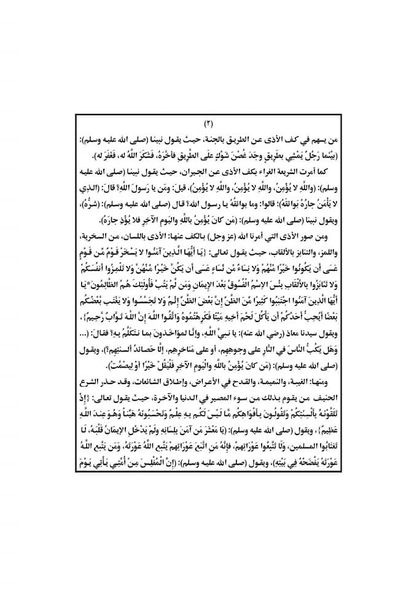 (٢)
من يسهم في كف الأذى عن الطريق بالجنة، حيث يقول نبينا (صلى الله عليه وسلم):
(بَيْنَمَا رَجُلٌ يَمْشِي بطَرِيقٍ وجَدَ غُصْنَ شَوْكٍ علَى الطَّرِيقِ فأخَّرَهُ، فَشَكَرَ اللَّهُ له، فَغَفَرَ له).
كما أمرت الشريعة الغراء بكف الأذى عن الجيران، حيث يقول نبينا (صلى الله عليه
وسلم): (واللَّهِ لا يُؤْمِنُ، واللَّهِ لا يُؤْمِنُ، واللَّهِ لا يُؤْمِنُ)، قيلَ: ومَن يا رَسولَ اللَّهِ؟ قالَ: (الذي
لا يَأْمَنُ جارُهُ بَوائقَهُ)؛ قالوا: وما بوائقُهُ يا رسول الله؟ قال (صلى الله عليه وسلم): (شرُّهُ)،
ويقول نبينا (صلى الله عليه وسلم): (مَن كانَ يُؤْمِنُ باللَّهِ واليَومِ الآخِرِ فلا يُؤْذِ جارَهُ).
ومن صور الأذى التي أمرنا الله (عز وجل) بالكف عنها: الأذى باللسان، من السخرية،
واللمز، والتنابز بالألقاب، حيث يقول تعالى: {يَا أَيُّهَا الَّذِينَ آمَنُوا لَا يَسْخَرْ قَوْمٌ مِّن قَوْمٍ
عَسَى أَن يَكُونُوا خَيْرًا مِّنْهُمْ وَلَا نِسَاءٌ مِّن نِّسَاءٍ عَسَى أَن يَكُنَّ خَيْرًا مِّنْهُنَّ وَلَا تَلْمِزُوا أَنفُسَكُمْ
وَلَا تَنَابَزُوا بِالْأَلْقَابِ بِئْسَ الِاسْمُ الْفُسُوقُ بَعْدَ الْإِيمَانِ وَمَن لَّمْ يَتُبْ فَأُولَئِكَ هُمُ الظَّالِمُونَ*يَا
أَيُّهَا الَّذِينَ آمَنُوا اجْتَنِبُوا كَثِيرًا مِّنَ الظَّنِّ إِنَّ بَعْضَ الظَّنِّ إِثْمٌ وَلَا تَجَسَّسُوا وَلَا يَغْتَب بَّعْضُكُم
بَعْضًا أَيُحِبُّ أَحَدُكُمْ أَن يَأْكُلَ لَحْمَ أَخِيهِ مَيْتًا فَكَرِهْتُمُوهُ وَاتَّقُوا اللَّهَ إِنَّ اللَّهَ تَوَّابٌ رَّحِيمٌ}،
ويقول سيدنا معاذ (رضي الله عنه): يا نبيَّ اللهِ، وإنَّا لمؤاخَذون بما نتكلَّمُ به؟ فقالَ: (...
وَهَل يَكُبُّ النَّاسَ في النَّارِ على وجوهِهِم، أو على مَناخرِهِم، إلَّا حَصائدُ ألسنتِهِم؟)، ويقول
(صلى الله عليه وسلم): (مَن كانَ يُؤْمِنُ باللَّهِ واليَومِ الآخِرِ فَلْيَقُلْ خَيْرًا أوْ لِيَصْمُتْ).
ومنها: الغيبة، والنميمة، والقدح في الأعراض، وإطلاق الشائعات، وقد حذر الشرع
الحنيف من يقوم بذلك من سوء المصير في الدنيا والآخرة، حيث يقول تعالى: {إِذْ
تَلَقَّوْنَهُ بِأَلْسِنَتِكُمْ وَتَقُولُونَ بِأَفْوَاهِكُم مَّا لَيْسَ لَكُم بِهِ عِلْمٌ وَتَحْسَبُونَهُ هَيِّنًا وَهُوَ عِندَ اللَّهِ
عَظِيمٌ}، ويقول (صلى الله عليه وسلم): (يَا مَعْشَرَ مَن آمَنَ بِلِسَانِهِ ولَمْ يَدْخُلِ الإيمَانُ قَلْبَهُ، لَا
تَغتابُوا المسلمين، ولَا تتَّبعُوا عَوْرَاتِهِمْ، فإنَّه مَنِ اتَّبَعَ عَوْرَاتِهِمْ يَتبعِ اللهُ عَوْرَتَه، ومَن يَتَّبعِ اللهُ
عَوْرَتَهُ يَفْضَحْهُ فِي بَيْتِهِ)، ويقول (صلى الله عليه وسلم): (إِنَّ الْمُفْلِسَ مِنْ أُمَّتِي يَأْتِي يَوْمَ